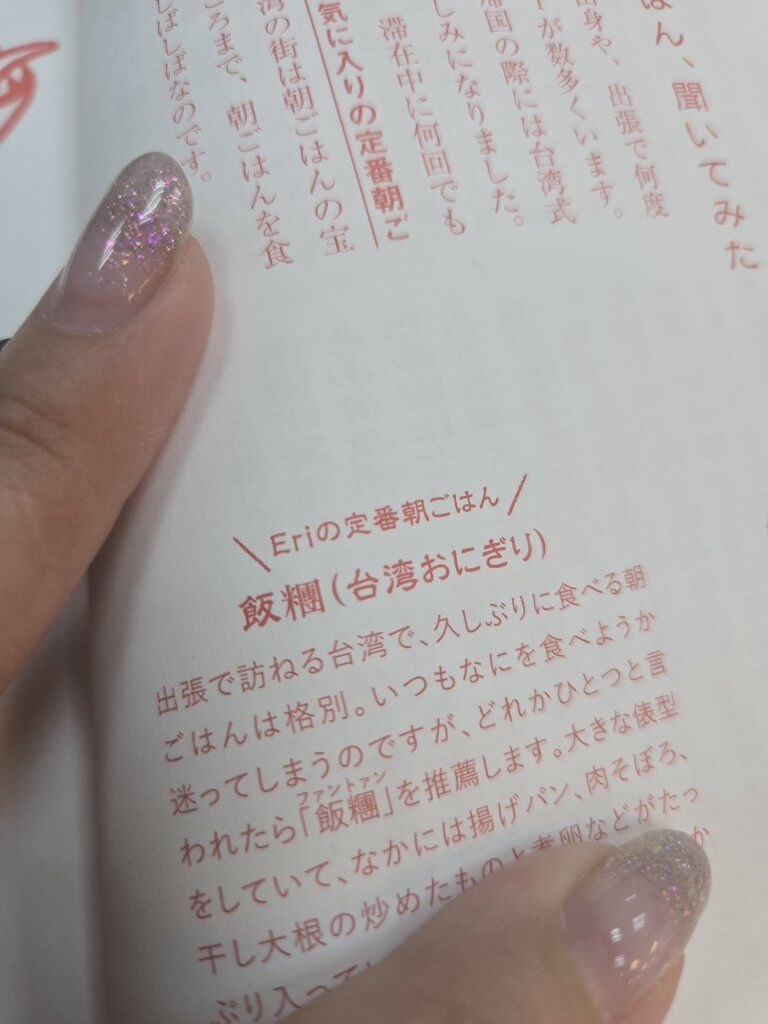 はん、聞いてみた
身や、出張で何度
が数多くいます。
帰国の際には台湾式
しみになりました。
滞在中に何回でも
気に入りの定番朝ご
湾の街は朝ごはんの宝
ころまで、朝ごはんを食
しばしばなのです。
Eriの定番朝ごはん
飯糰(台湾おにぎり)
出張で訪ねる台湾で、久しぶりに食べる朝
ごはんは格別。いつもなにを食べようか
迷ってしまうのですが、どれかひとつと言
ファントァン
われたら「飯糰」を推薦します。大きな俵型
をしていて、なかには揚げパン、肉そぼろ、
干し大根の炒めたものと煮卵などがたっ
ぷり入って